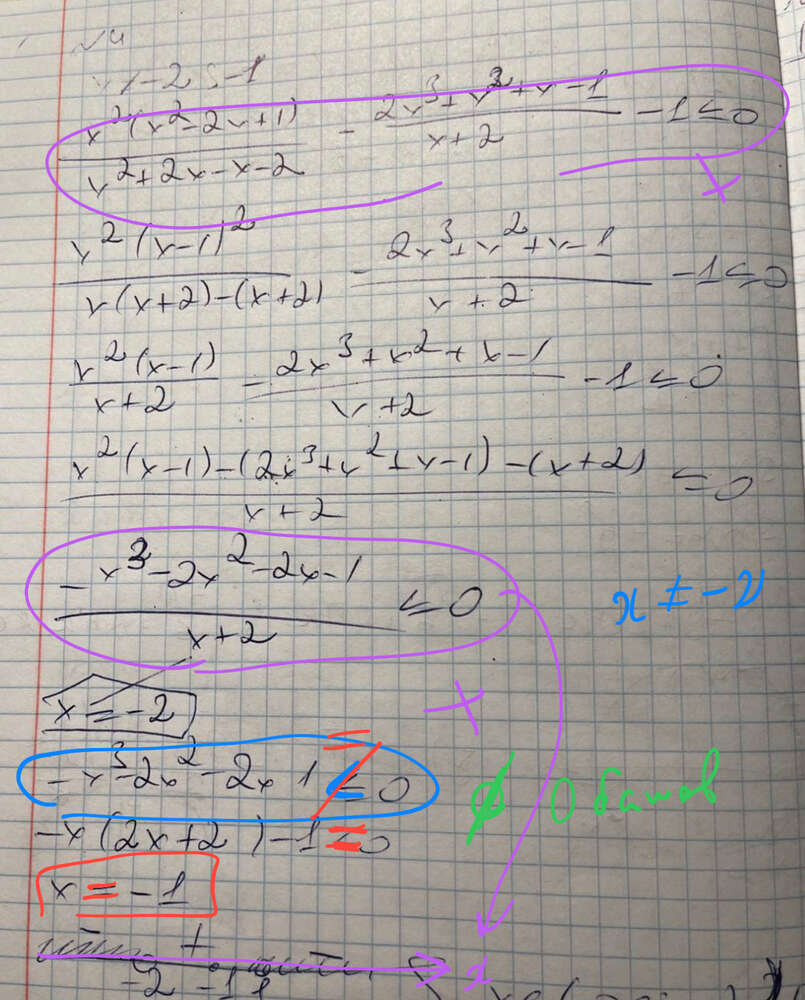 √4
x^2(x^2-2x+1) / x^2+2x-x-2 - 2x^3+x^2+x-1 / x+2 - 1 ≤ 0
+
x^2(x-1)^2 / x(x+2)-(x+2) - 2x^3+x^2+x-1 / x+2 - 1 ≤ 0
x^2(x-1) / x+2 - 2x^3+x^2+x-1 / x+2 - 1 ≤ 0
x^2(x-1)-(2x^3+x^2+x-1)-(x+2) / x+2 ≤ 0
-x^3-2x^2-2x-1 / x+2 ≤ 0
x ≠ -2
x = -2
+
-x^3-2x^2-2x 1 = 0
∅ 0 баллов
-x(2x+2)-1 = 0
x = -1
+ -
-2 -1 1
x